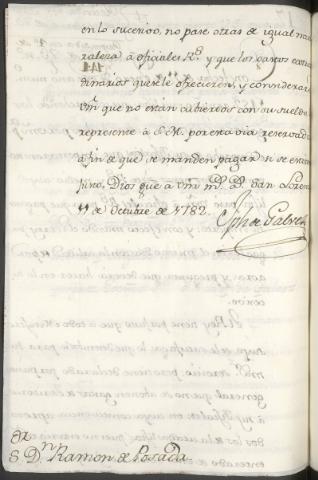 en lo sucesivo, no pase otras de igual natu
raleza à oficiales R.s y que los gastos extraor
dinarios que se le ofrecieren, y considerare
Vm que no estan cubiertos con su sueldo
represente à S. M. por esta via reservada
à fin de que se manden pagar si se estima
justo. Dios gue à Vm m.s a.s San Lorenzo
11 de Octubre de 1782.
Jph de Galvez
S.or D.n Ramon de Posada